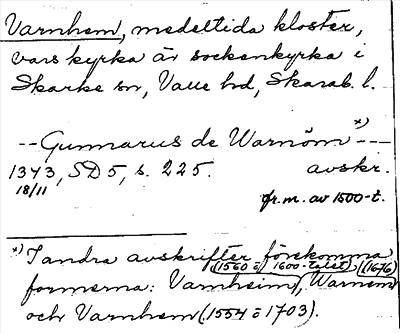 Varnhem, medeltida kloster,
vars kyrka är sockenkyrka i
Skarke sn, Valle hd, Skarab. l.
-- Gunnarus de Warnöm *) ---
1343, SD 5, s. 225. avskr.
18/11 fr. m. av 1500-t.
*) I andra avskrifter förekomma
(1560 o 1600-talet) (1676)
formerna: Varnheim, Warnem
och Varnhem (1554 o 1703).